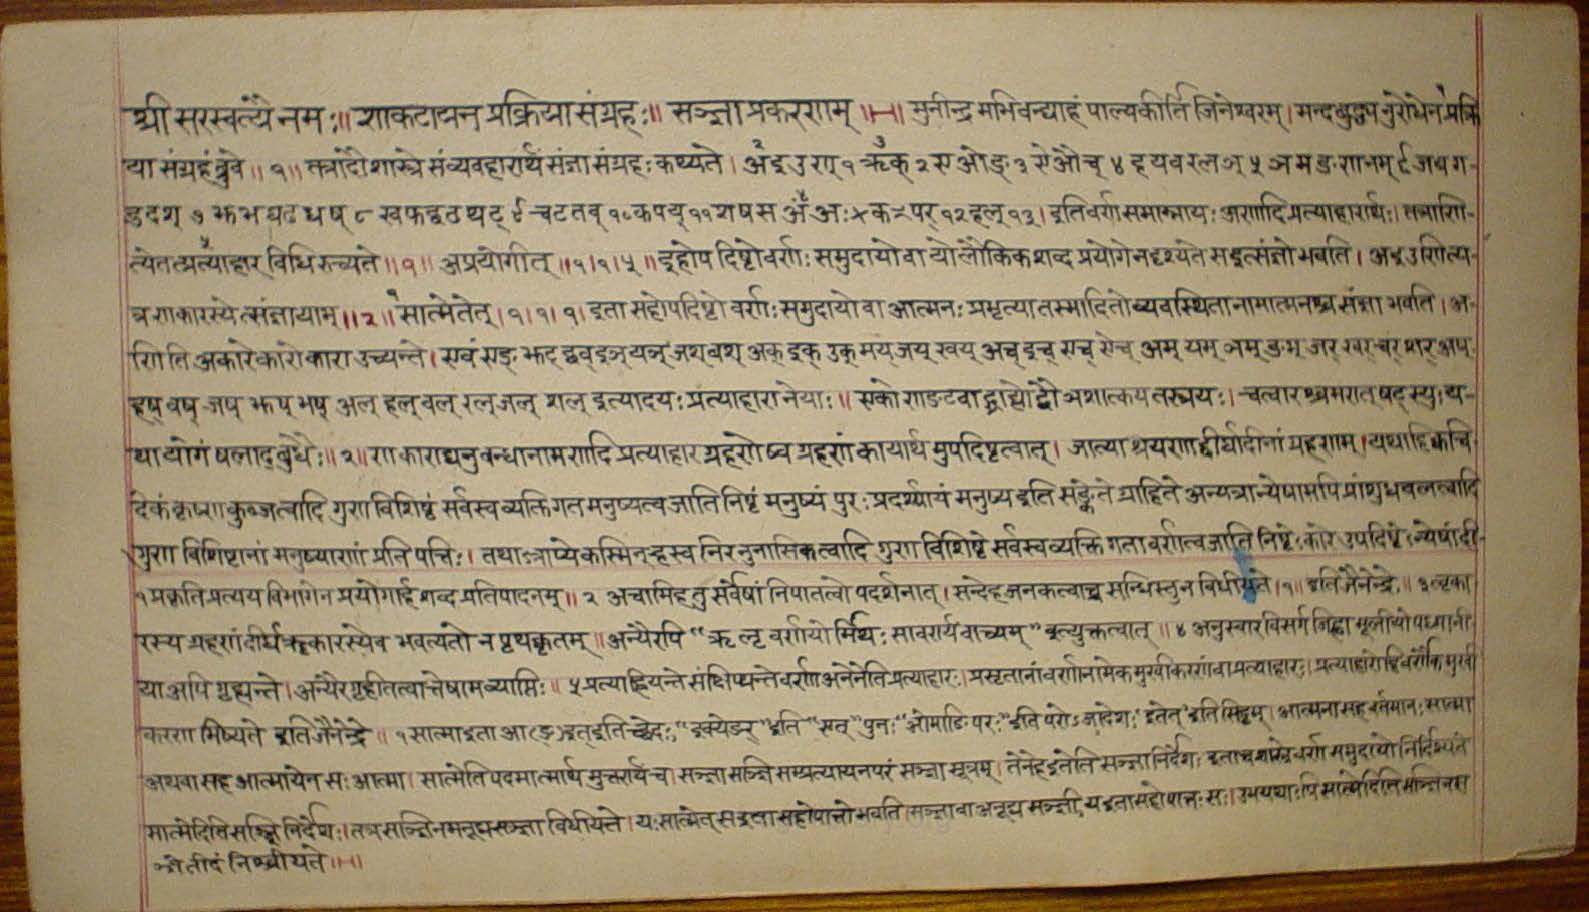 श्री सरस्वत्यै नमः॥ शाकटायन प्रक्रिया संग्रहः॥ सञ्ज्ञा प्रकरणम् ॥ मुनीन्द्रमभिवन्द्याहं पाल्यकीर्तिं जिनेश्वरम्। मन्दबुद्ध्यनुरोधेन प्रक्रि
या संग्रहं ब्रुवे॥१॥ तत्रादौ शास्त्रे संव्यवहारार्थं संज्ञा संग्रहः कथ्यते। अइउण् १ ऋक् २ एओङ् ३ ऐऔच् ४ हयवरलञ् ५ ञमङणनम् ६ जबग-
डदश् ७ झभघढधष् ८ खफछठथट् ९ चटतव् १० कपय् ११ शषस अं अः ᳵक ᳶपर् १२ हल् १३। इति वर्णसमाम्नायः अणादि प्रत्याहारार्थः। तत्राणि-
त्येतत्प्रत्याहार विधिरुच्यते॥१॥ अप्रयोगीत्॥१।१।५॥ इहोपदिष्टो वर्णः समुदायो वा यो लौकिक शब्द प्रयोगे न दृश्यते स इत्संज्ञो भवति। अइउणित्य-
त्र णकारस्येत्संज्ञायाम्॥२॥ सात्मेतेत्।१।१।१। इता सहोपदिष्टो वर्णः समुदायो वा आत्मनः प्रभृत्या तस्मादितो व्यवस्थितानामात्मनश्च संज्ञा भवति। अ-
णिति अकारेकारोकारा उच्यन्ते। एवं एङ् झट् छव् इञ् यञ् जश् बश् अक् इक् उक् मय् जय् खय् अच् इच् एच् ऐच् अम् यम् ञम् ङम् जर् खर् चर् शर् अष्
हष् वष् जष् झष् भष् अल् हल् वल् रल् जल् शल् इत्यादयः प्रत्याहारा नेयाः॥ एको णङटवाद्भ्यो द्वौ ञशात्कयतस्त्रयः। चत्वारश्चमरात् षट् स्युः य-
था योगं षलाद् बुधैः॥१॥ णकाराद्यनुबन्धानामणादि प्रत्याहार ग्रहणेष्वग्रहणं कार्यार्थमुपदिष्टत्वात्। जात्याश्रयणाद्दीर्घादीनां ग्रहणम्। यथा हि कंचि
देकं कृष्ण कुब्जत्वादि गुण विशिष्टं सर्वस्व व्यक्तिगत मनुष्यत्व जाति निष्ठं मनुष्यं पुरः प्रदर्श्यायं मनुष्य इति सङ्केते ग्राहिते अन्यत्रान्येषामपि प्रांशुधवलत्वादि
गुण विशिष्टानां मनुष्याणां प्रतिपत्तिः। तथाऽत्राप्येकस्मिन् ह्रस्व निरनुनासिकत्वादि गुण विशिष्टे सर्वस्व व्यक्ति गता वर्णत्व जाति निष्ठेऽकारे उपदिष्टेऽन्येषां दी-
१ प्रकृति प्रत्यय विभागेन प्रयोगार्ह शब्द प्रतिपादनम्॥ २ अचामिह तु सर्वेषां निपातत्वोपदर्शनात्। सन्देह जनकत्वाच्च सन्धिस्तु न विधीयते।१॥ इति जैनेन्द्रे॥ ३ लृका
रस्य ग्रहणं दीर्घ ॠकारस्येव भवत्यतो न पृथक्कृतम्॥ अन्यैरपि “ऋलृ वर्णयोर्मिथः सावर्ण्यं वाच्यम्” इत्युक्तत्वात्॥ ४ अनुस्वार विसर्ग जिह्वामूलीयोपध्मानी
या अपि गृह्यन्ते। अन्यैरगृहीतत्वात्तेषामव्याप्तिः॥ ५ प्रत्याह्रियन्ते संक्षिप्यन्ते वर्णा अनेनेति प्रत्याहारः। प्रसृतानां वर्णानामेकमुखीकरणं वा प्रत्याहारः। प्रत्याहारो हि वर्णैकमुखी
करणमिष्यते इति जैनेन्द्रे॥ १ सात्मा इता आ (ङ्) इत् इतिच्छेदः, “इक्येङर्” इति “एत्” पुनः “ओमाङि परः” इति परोऽजादेशः “इतेत्” इति सिद्धम्। आत्मना सह वर्तमानः सात्मा
अथवा सह आत्मा येन सः आत्मा। सात्मेति पदमात्मार्थमुत्तरार्थं च। सञ्ज्ञा सञ्ज्ञि सम्प्रत्यायनपरं सञ्ज्ञा सूत्रम्। तेनेह इतेति सञ्ज्ञा निर्देशः इता च शास्त्रे वर्ण समुदायो निर्दिश्यते
सात्मेदिति सञ्ज्ञि निर्देशः। तत्र सञ्ज्ञिनमनूद्य सञ्ज्ञा विधीयते। यः सात्मेत् स इता सहोपात्तो भवति। सञ्ज्ञा वा अनूद्य सञ्ज्ञी य इता सहोपात्तः सः। उभयथाऽपि सात्मेदिति सञ्ज्ञिनः स
ञ्ज्ञेतीदं निश्चीयते॥